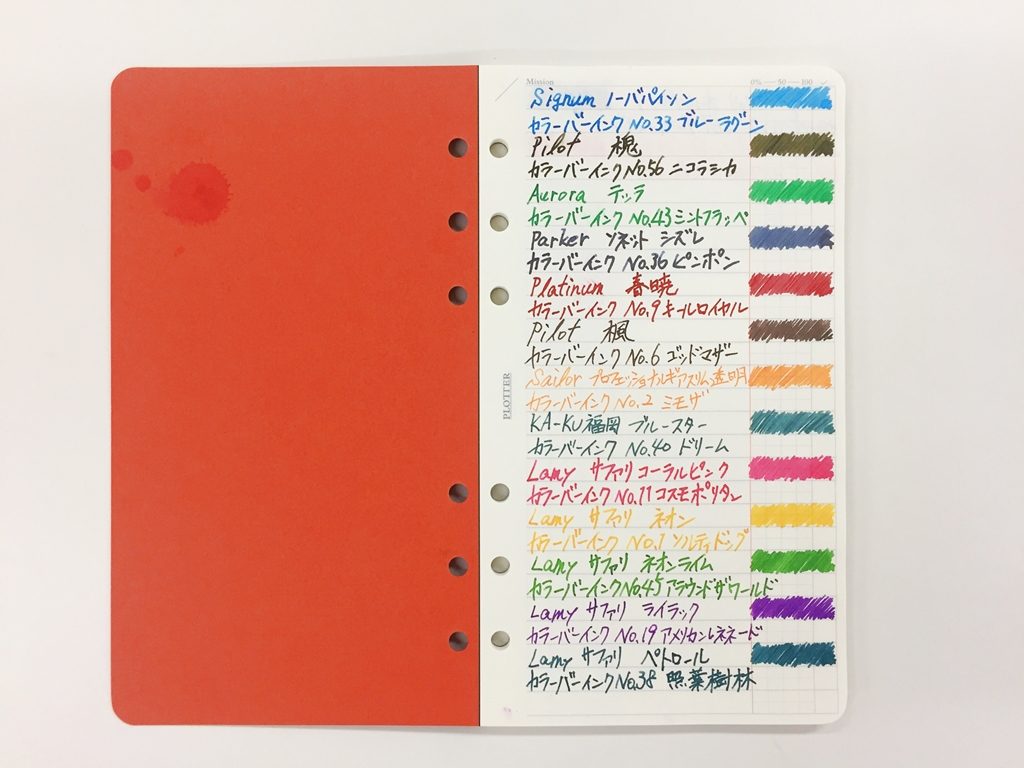 Mission 0% 50 100
Signum ノーバパイソン
カラーバーインク No.33 ブルーラグーン
Pilot 槐
カラーバーインク No.56 ニコラシカ
Aurora テッラ
カラーバーインク No.43 ミントフラッペ
Parker ソネット シズレ
カラーバーインク No.36 ピンポン
Platinum 春暁
カラーバーインク No.9 キールロイヤル
Pilot 楓
カラーバーインク No.6 ゴッドマザー
Sailor プロフェッショナルギアスリム透明
カラーバーインク No.2 ミモザ
KA-KU福岡 ブルースター
カラーバーインク No.40 ドリーム
Lamy サファリ コーラルピンク
カラーバーインク No.11 コスモポリタン
Lamy サファリ ネオン
カラーバーインク No.1 ソルティドッグ
Lamy サファリ ネオンライム
カラーバーインク No.45 アラウンドザワールド
Lamy サファリ ライラック
カラーバーインク No.19 アメリカンレネネード
Lamy サファリ ペトロール
カラーバーインク No.38 照葉樹林
PLOTTER